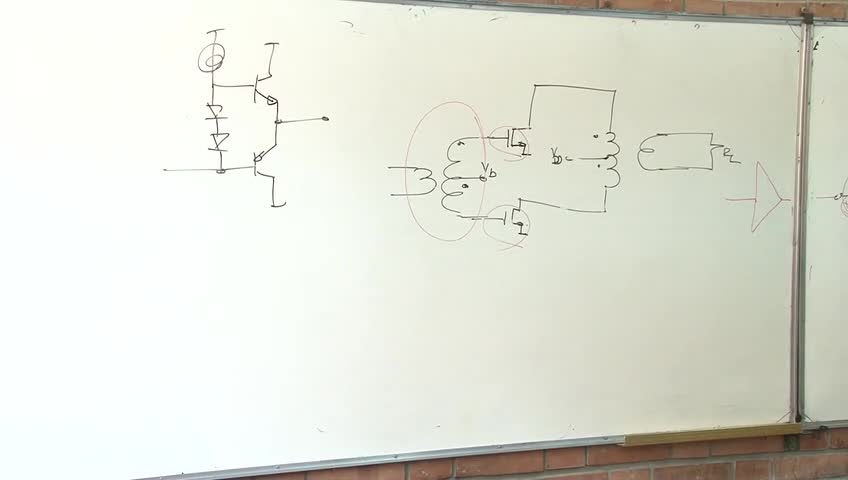 V_b
V_DD
R_L